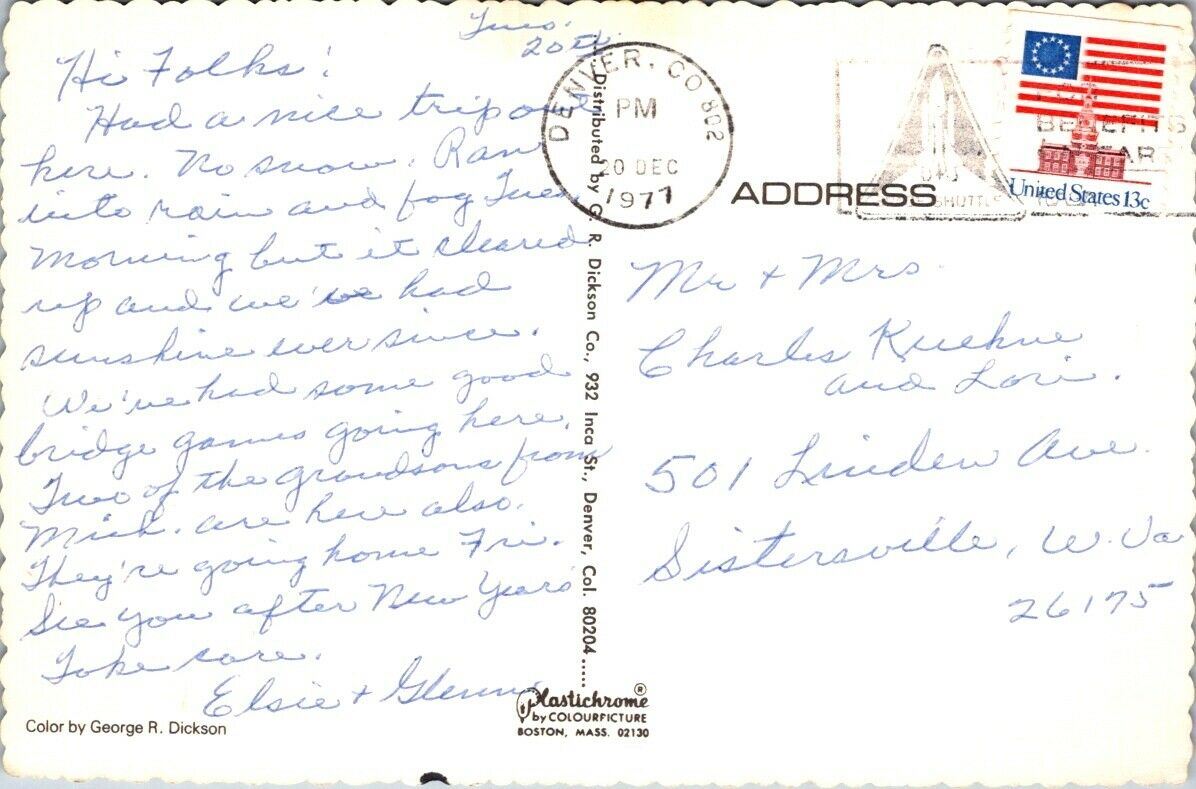 Tues.
20th
Hi Folks!
Had a nice trip out
here. No snow. Ran
into rain and fog Tues.
morning but it cleared
up and we've had
sunshine ever since.
We've had some good
bridge games going here.
Two of the grandsons from
Mich. are here also.
They're going home Fri.
See you after New Years
Take care.
Elsie + Glenn
Color by George R. Dickson
Distributed by G. R. Dickson Co., 932 Inca St., Denver, Col. 80204....
Plastichrome®
by COLOURPICTURE
BOSTON, MASS. 02130
DENVER, CO 802
PM
20 DEC
1977
SHUTTLE
BENEFITS
United States 13c
ADDRESS
Mr + Mrs
Charles Kuehne
and Lori.
501 Linden Ave.
Sistersville, W. Va
26175